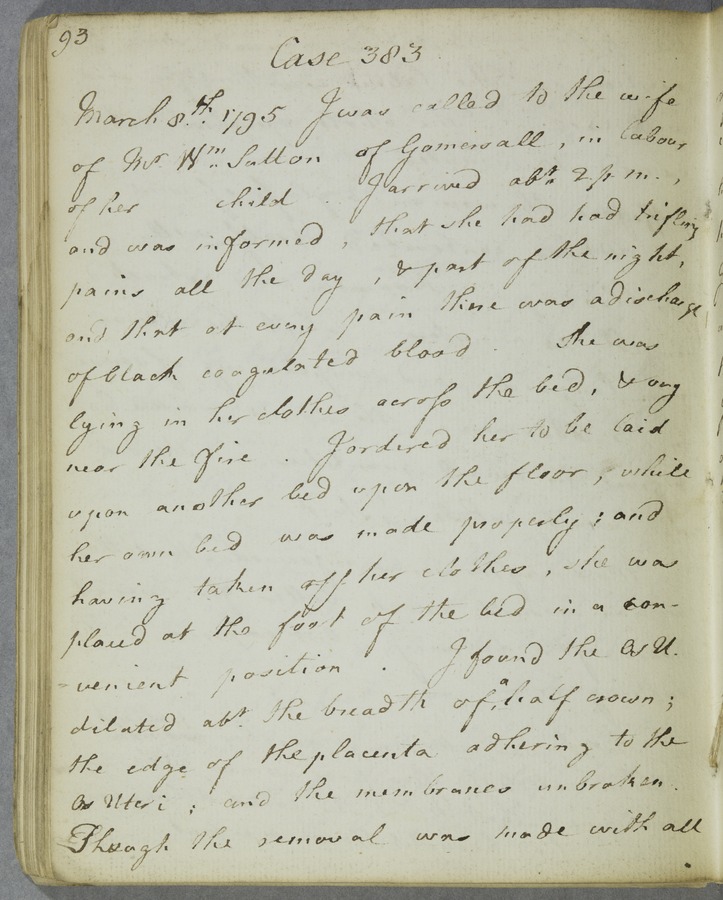 93
Case 383
March 8.th 1795 I was called to the wife
of Mr. Wm. Sutton of Gomersall, in labour
of her child. I arrived abt. 2 p.m.,
and was informed, that she had had trifling
pains all the day, & part of the night,
and that at every pain there was a discharge
of black coagulated blood. She was
lying in her clothes across the bed, & very
near the fire. I ordered her to be laid
upon another bed upon the floor, while
her own bed was made properly; and
having taken off her clothes, she was
placed at the foot of the bed in a con-
-venient position. I found the Os U.
dilated abt. the breadth of a half crown;
the edge of the placenta adhering to the
Os Uteri; and the membranes unbroken.
Though the removal was made with all